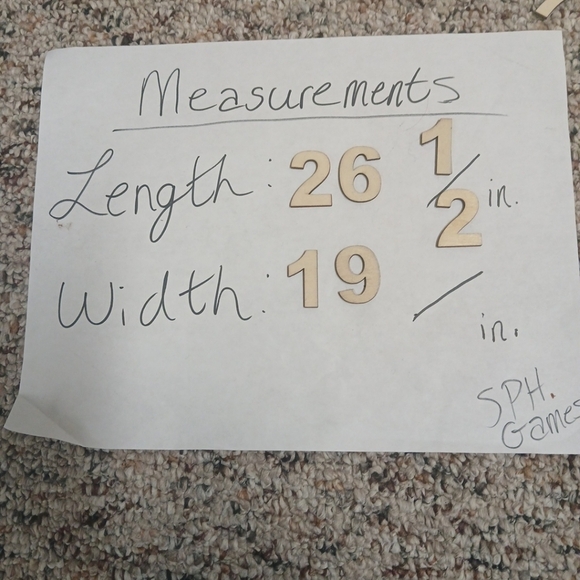 Measurements
Length: 26 1/2 in.
Width: 19 / in.
SPH.
Games